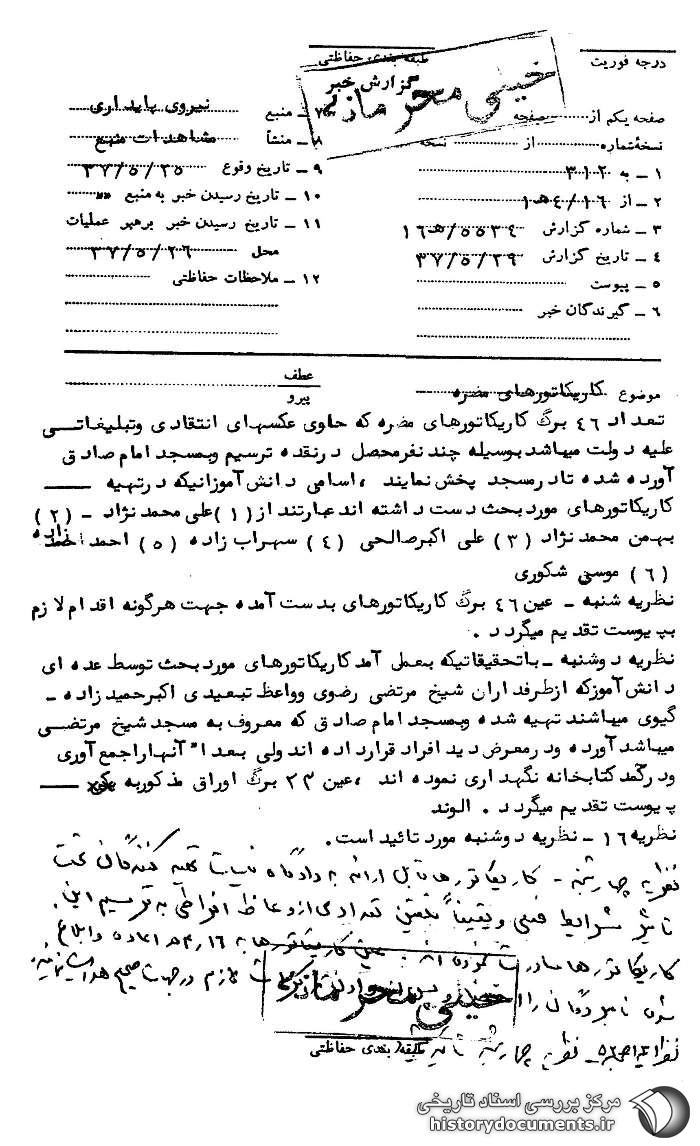 درجه فوریت
طبقه بندی حفاظتی
گزارش خبر
خیلی محرمانه
صفحه یکم از صفحه
نسخه شماره از نسخه
۱ ـ به ۳۱۲
۲ ـ از ۴/۱۶ هـ ۱
۳ ـ شماره گزارش ۵۵۳۴/ هـ ۱۶
۴ ـ تاریخ گزارش ۳۷/۵/۲۹
۵ ـ پیوست
۶ ـ گیرندگان خبر
۷ ـ منبع نیروی پایداری
۸ ـ منشأ مشاهدات منبع
۹ ـ تاریخ وقوع ۳۷/۵/۲۵
۱۰ ـ تاریخ رسیدن خبر به منبع »»
۱۱ ـ تاریخ رسیدن خبر برهبر عملیات
محل ۳۷/۵/۲۶
۱۲ ـ ملاحظات حفاظتی
عطف
پیرو
موضوع کاریکاتورهای مضره
تعداد ۴۶ برگ کاریکاتورهای مضره که حاوی عکسهای انتقادی وتبلیغاتی
علیه دولت میباشد بوسیله چند نفرمحصل درنقده ترسیم وبمسجد امام صادق
آورده شده تادرمسجد پخش نمایند ، اسامی دانش آموزانیکه درتهیه
کاریکاتورهای مورد بحث دست داشته اند عبارتند از (۱) علی محمد نژاد ـ (۲)
بهمن محمد نژاد (۳) علی اکبرصالحی (۴) سهراب زاده (۵) احمد احمدزاده
(۶) موسی شکوری
نظریه شنبه ـ عین ۴۶ برگ کاریکاتورهای بدست آمده جهت هرگونه اقدام لازم
بپیوست تقدیم میگردد .
نظریه دوشنبه ـ باتحقیقاتیکه بعمل آمد کاریکاتورهای مورد بحث توسط عده ای
دانش آموزکه ازطرفداران شیخ مرتضی رضوی وواعظ تبعیدی اکبرحمیدزاده ـ
گیوی میباشند تهیه شده وبمسجد امام صادق که معروف به مسجد شیخ مرتضی
میباشد آورده ودرمعرض دید افراد قرارداده اند ولی بعدا" آنهاراجمع آوری
ودرکمد کتابخانه نگهداری نموده اند ، عین ۲۳ برگ اوراق مذکوربه
پیوست تقدیم میگردد . الوند
نظریه ۱۶ ـ نظریه دوشنبه مورد تائید است .
نظریه چهارشنبه ـ کاریکاتورها قابل ارائه به دادگاه تهیه کنندگان تحت
تاثیر شرایط فعلی ویقیناً تعدادی از وعاظ افراطی به ترسیم این
کاریکاتورها مبادرت نموده اند . عین کاریکاتورها به ۴/۱۶ هـ اعاده
شود نامبردگان را لازم در جهت صحیح هدایت
خیلی محرمانه
نظریه چهارشنبه
طبقه بندی حفاظتی
مرکز بررسی اسناد تاریخی
historydocuments.ir